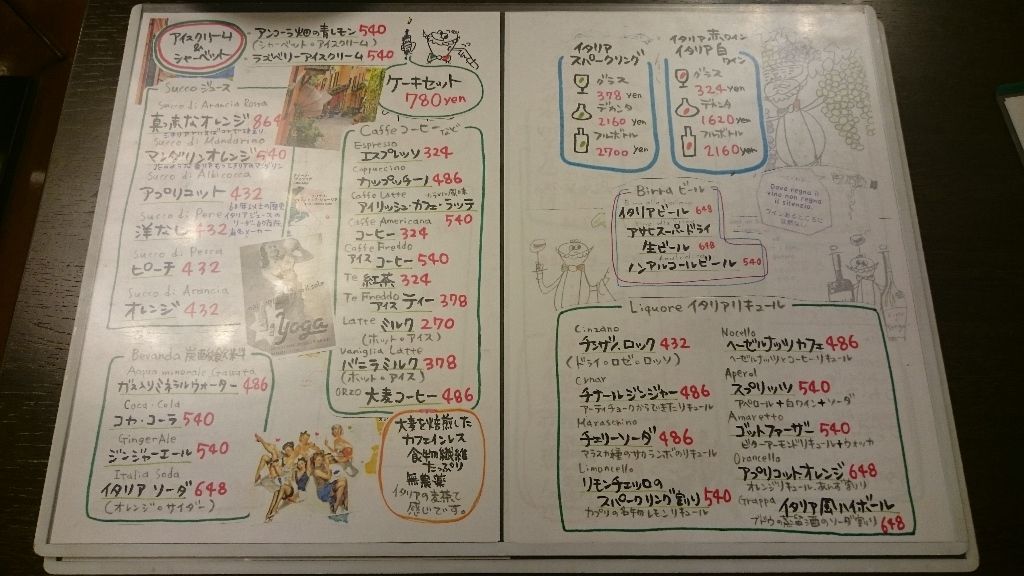 アイスクリーム
&
シャーベット
アンコーラ畑の青レモン 540
(シャーベット。アイスクリーム)
ラズベリーアイスクリーム 540
ケーキセット
780yen
Succo ジュース
Succo di Arancia Rossa
真っ赤なオレンジ 864
Succo di Mandarino
マンダリンオレンジ 540
Succo di Albicocca
アプリコット 432
Succo di Pere
洋なし 432
Succo di Pesca
ピーチ 432
Succo di Arancia
オレンジ 432
Yoga
Bevanda 炭酸飲料
Acqua minerale Gassata
ガス入りミネラルウォーター 486
Coca-Cola
コカ・コーラ 540
Ginger Ale
ジンジャーエール 540
Italia Soda
イタリアソーダ 648
(オレンジ。サイダー)
Caffe コーヒーなど
Espresso
エスプレッソ 324
Cappuccino
カップッチーノ 486
Caffe Latte
アイリッシュ・カフェ・ラッテ 540
Caffe Americana
コーヒー 324
Caffe Freddo
アイスコーヒー 540
Te 紅茶 324
Te Freddo
アイスティー 378
Latte ミルク 270
(ホット。アイス)
Vaniglia Latte
バニラミルク 378
(ホット。アイス)
Orzo 大麦コーヒー 486
大麦を焙煎した
カフェインレス
食物繊維
たっぷり
無農薬
イタリアの麦茶て
感じです。
イタリア
スパークリング
グラス
378 yen
デカンタ
2160 yen
フルボトル
2700 yen
イタリア赤ワイン
イタリア白ワイン
グラス
324 yen
デカンタ
1620 yen
フルボトル
2160 yen
Dove regna il
vino non regna
il silenzio.
Birra ビール
イタリアビール 648
アサヒスーパードライ
生ビール 648
ノンアルコールビール 540
Liquore イタリアリキュール
Cinzano
チンザノ ロック 432
(ドライ。ロゼ。ロッソ)
Cynar
チナールジンジャー 486
アーティチョークからできたリキュール
Maraschino
チェリーソーダ 486
マラスカ種のサクランボのリキュール
Limoncello
リモンチェッロの
スパークリング割り 540
カプリの名物レモンリキュール
Nocello
ヘーゼルナッツカフェ 486
ヘーゼルナッツとコーヒーリキュール
Aperol
スプリッツ 540
アペロール+白ワイン+ソーダ
Amaretto
ゴットファーザー 540
ビターアーモンドリキュール+ウォッカ
Orancello
アプリコットオレンジ 648
Grappa イタリア風ハイボール
ブドウの蒸留酒のソーダ割り 648